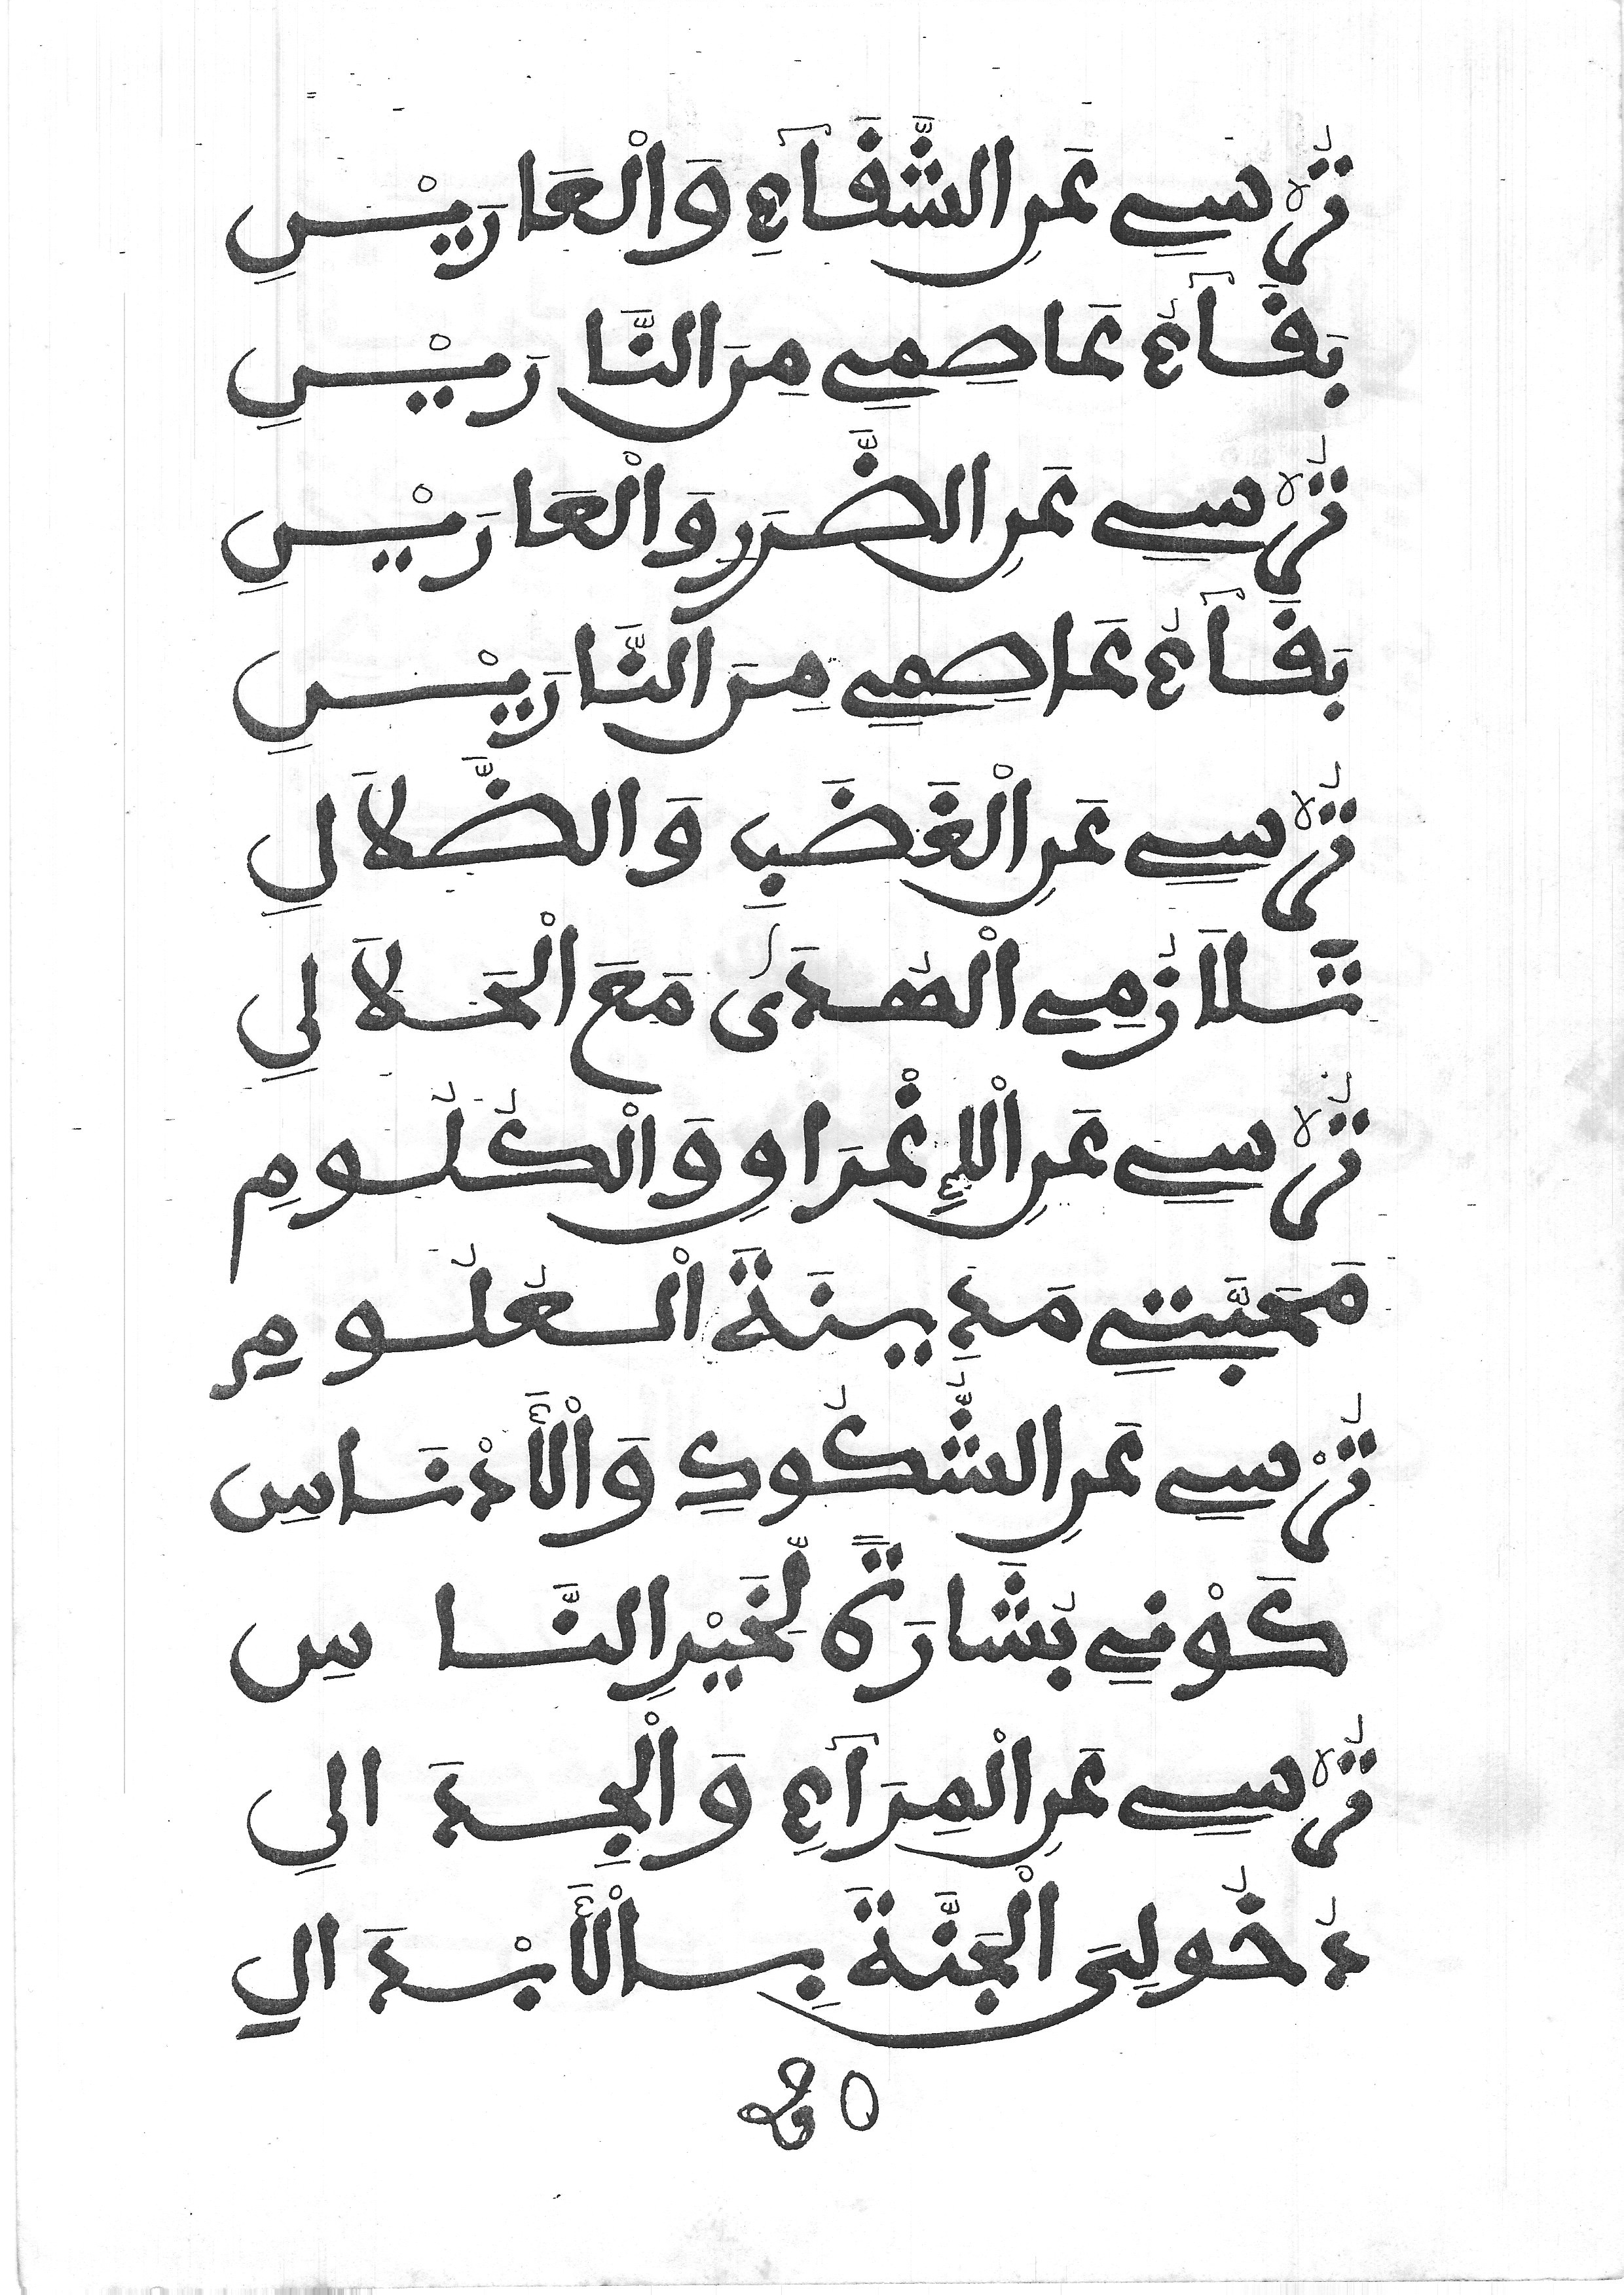 تُرْسِي عَنِ الشَّقَاءِ وَالْعَارَيْنِ
بَقَاءُ عَاصِمِي مِنَ النَّارَيْنِ
تُرْسِي عَنِ الضَّرَرِ وَالْعَارَيْنِ
بَقَاءُ عَاصِمِي مِنَ النَّارَيْنِ
تُرْسِي عَنِ الْغَضَبِ وَالضَّلَالِ
تَلَازُمِي الْهُدَى مَعَ الْحَلَالِ
تُرْسِي عَنِ الْإِغْرَاقِ وَالْكُلُومِ
مَحَبَّتِي مَدِينَةَ الْعُلُومِ
تُرْسِي عَنِ الشُّكُوكِ وَالْأَدْنَاسِ
كَوْنِي بُشَارَةً لِّخَيْرِ النَّاسِ
تُرْسِي عَنِ الْمِرَاءِ وَالْجِدَالِ
دُخُولِيَ الْجَنَّةَ بِالْأَبْدَالِ